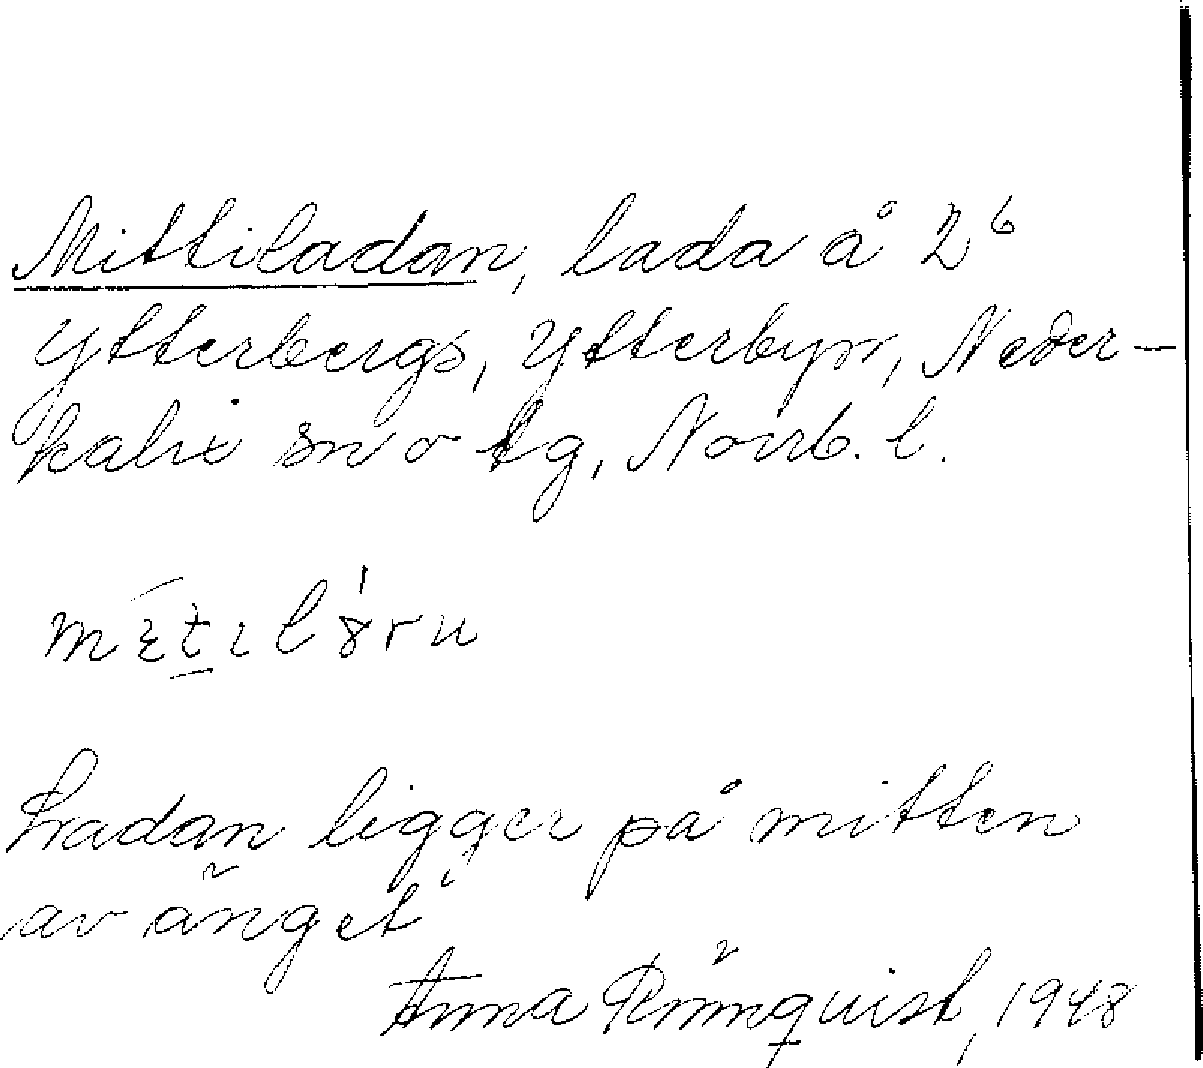 Mittiladan, lada å 2⁶
Ytterbergs, Ytterbyn, Neder-
kalix sn o tg, Norrb. l.
Ladan ligger på mitten
av änget
Anna Rönnquist, 1948